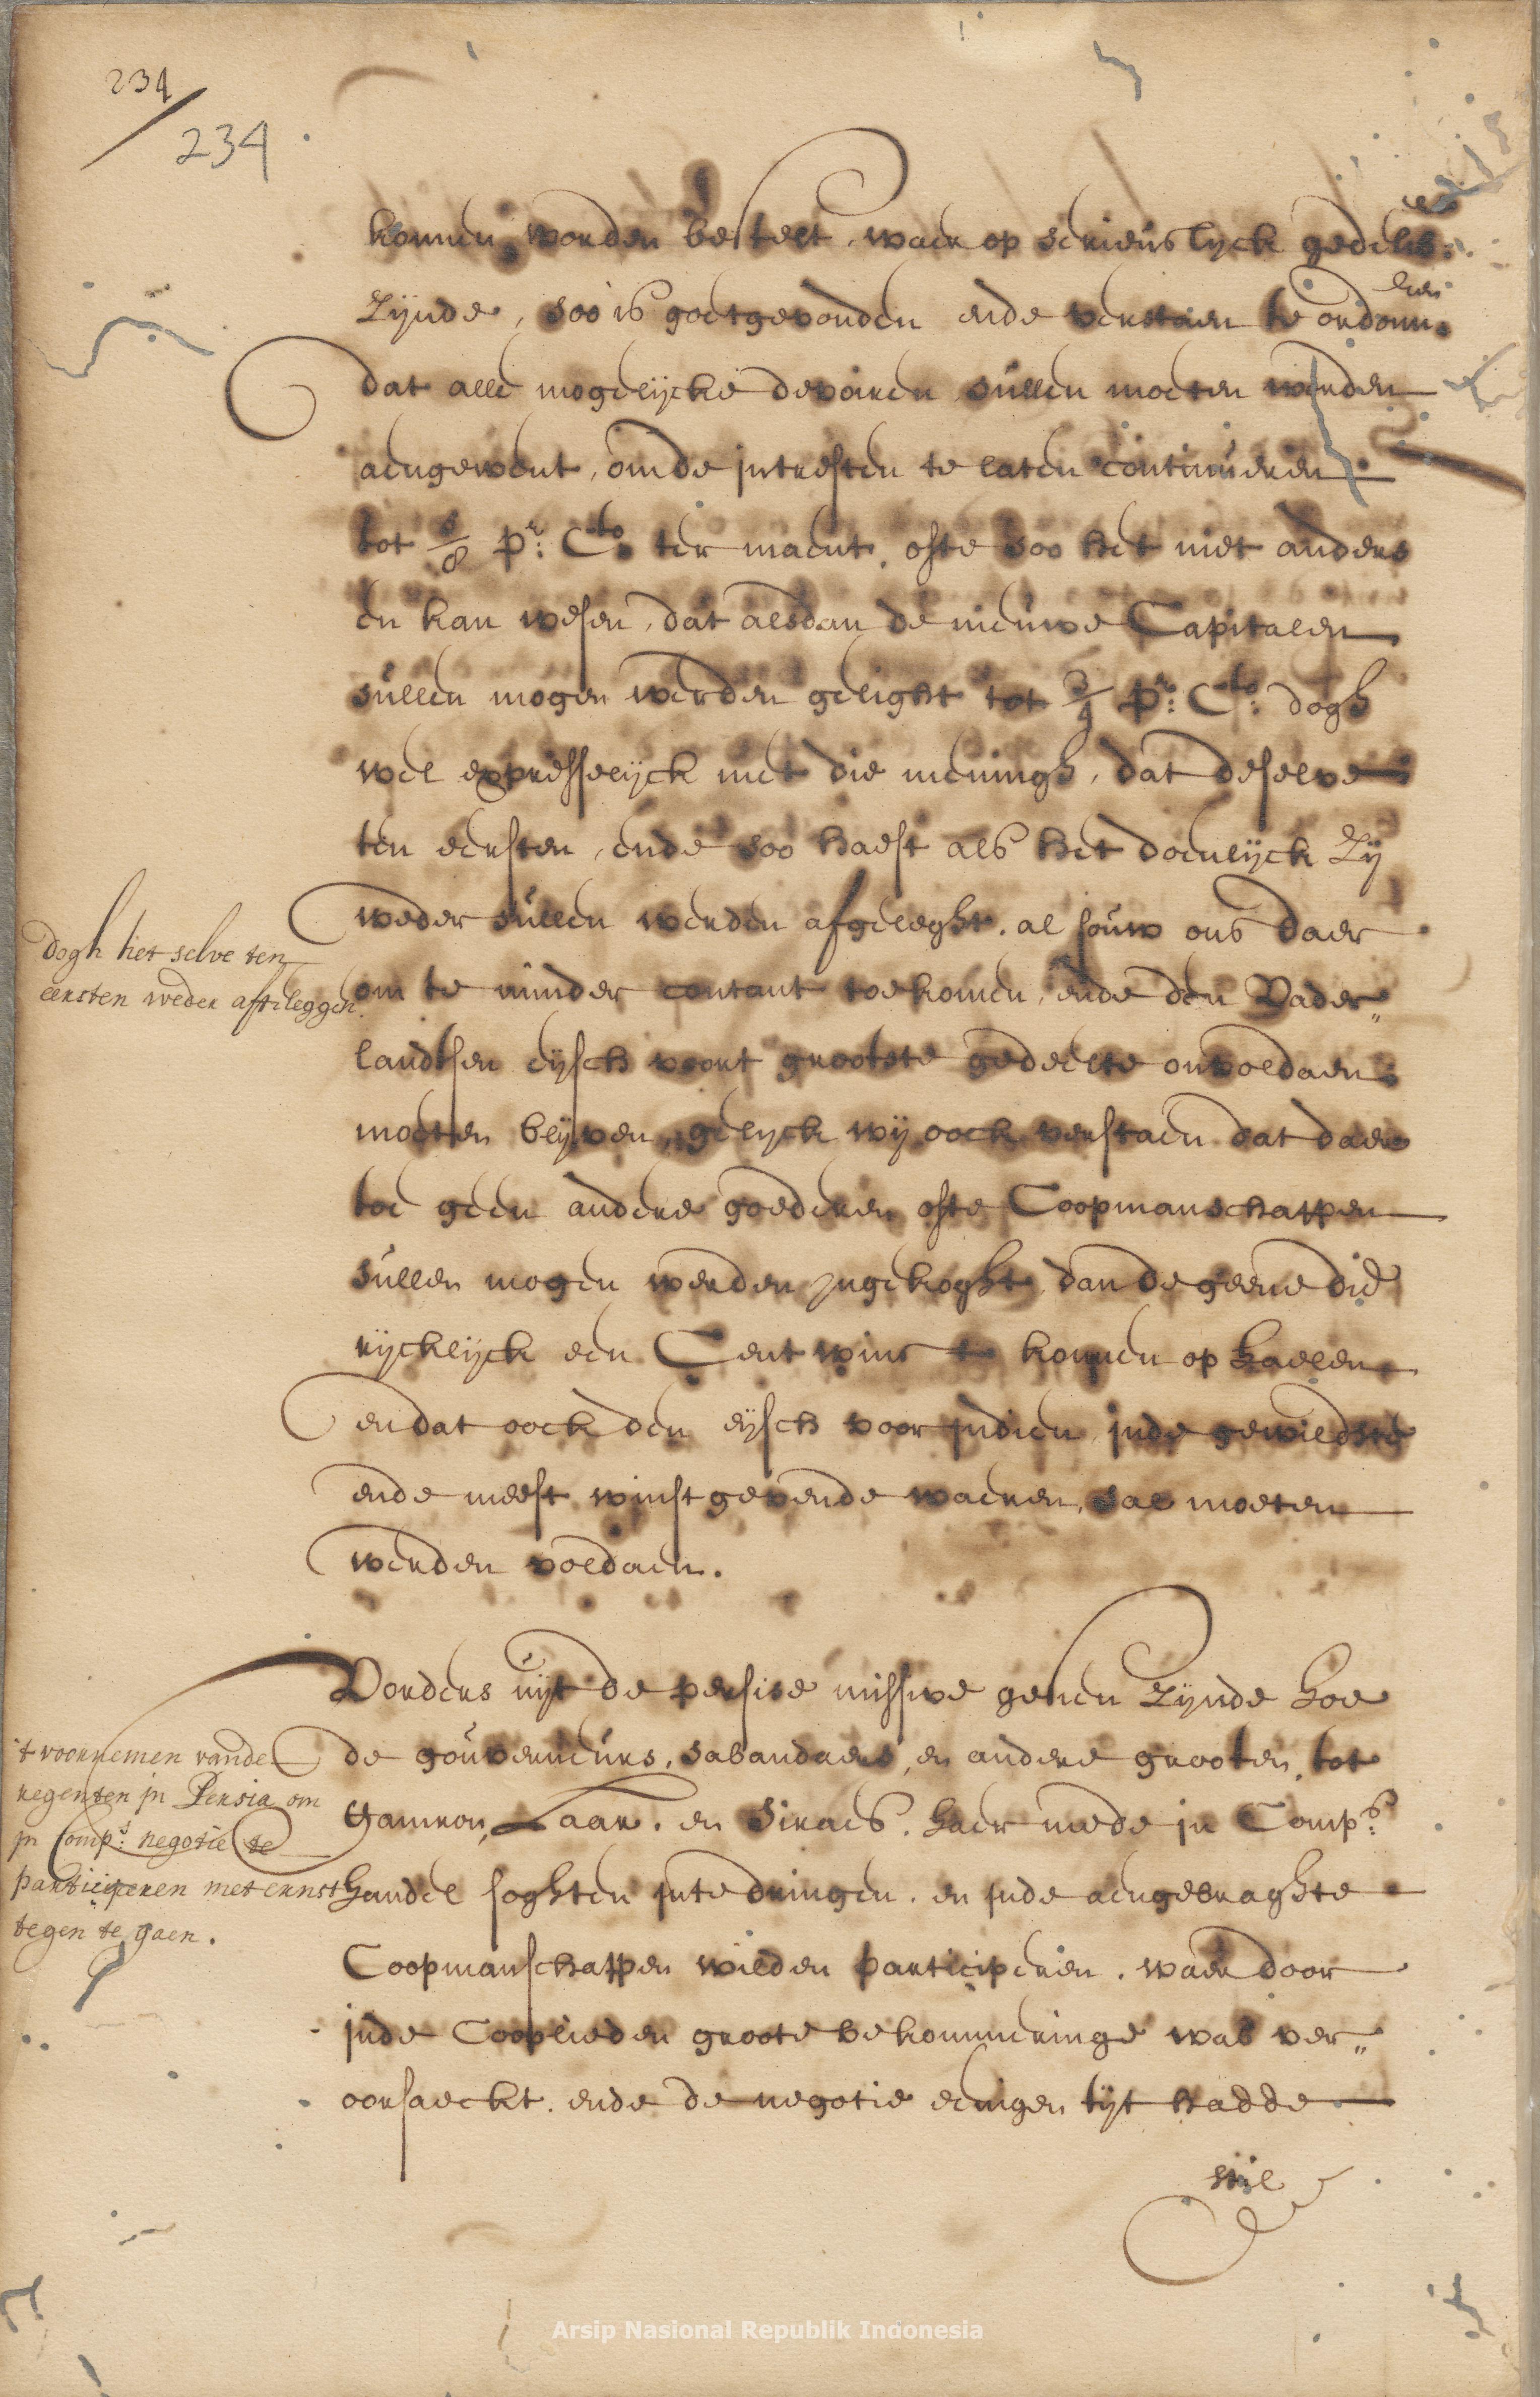 234
234
konnen worden bestelt, waer op serieuslyck gedelib:
Zijnde, soo is goetgevonden ende verstaen te ordonn:
eren
dat alle mogelijcke devoiren sullen moeten werden
aengewent, om de intresten te laten continueren
tot 5/8 pr: Cto ter maent, ofte soo het niet anders
en kan wesen, dat alsdan de nieuwe Capitalen
sullen mogen werden gelight tot 3/4 pr: Cto: dogh
wel expresselijck met die meningh, dat deselve
ten eersten, ende soo haest als het doenlijck Zij
weder sullen werden afgeleght, al souw ons daer
dogh het selve ten
eersten weder aff te leggen.
om te minder contant toekomen, ende den Vader„
landtsen eijsch voort grootste gedeelte onvoldaen
moeten blijven, gelyck wij oock verstaen dat daer
toe geen andere goederen ofte Coopmanschappen
sullen mogen werden ingekoght, dan de geene die
rijckelijck een Cent wins te konnen op haelen,
en dat oock den eijsch voor indien, inde gewildste
ende meest winst gevende waeren, sal moeten
werden voldaen.
Vorders uijt de persise missive gesien Zijnde hoe
de gouverneurs, sabandaers, en andere grooten, tot
Gamron, Laar, en Siraes, haer mede in Comps:
handel soghten inte dringen, en inde aengebraghte
Coopmanschappen wilden participeren, waer door
inde Cooplieden groote bekommeringe was ver„
oorsaeckt, ende de negotie eenigen tijt hadde
't voornemen vande
regenten in Persia om
in Comps: negotie te
participeren met ernst
tegen te gaen.
stil
Arsip Nasional Republik Indonesia